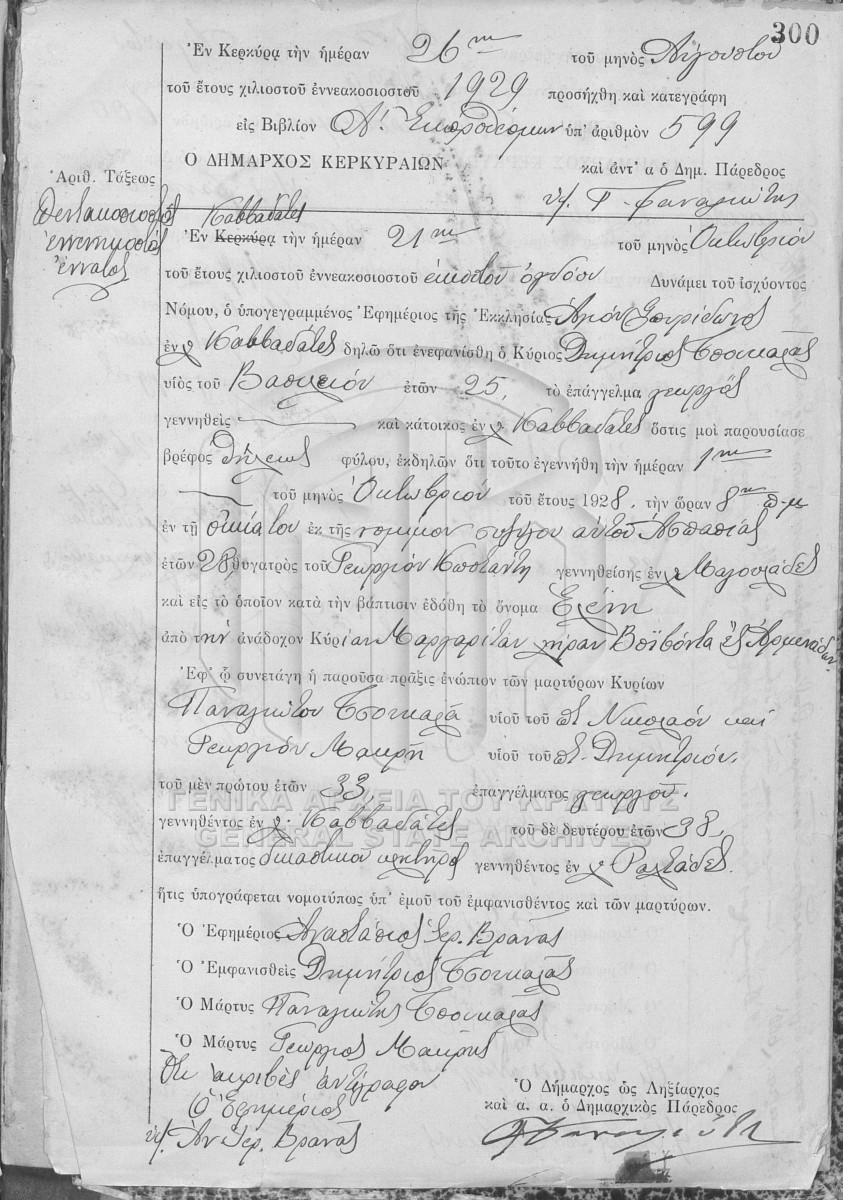 300
Ἐν Κερκύρᾳ τὴν ἡμέραν 26ην τοῦ μηνὸς Αὐγούστου
τοῦ ἔτους χιλιοστοῦ ἐννεακοσιοστοῦ 1929 προσήχθη καὶ κατεγράφη
εἰς Βιβλίον Α! Ἐκπροθέσμων ὑπ' ἀριθμὸν 599
Ο ΔΗΜΑΡΧΟΣ ΚΕΡΚΥΡΑΙΩΝ καὶ ἀντ' α ὁ Δημ. Πάρεδρος
Ἀριθ. Τάξεως
πεντακοσιοστός
ἐννενηκοστός
ἔννατος
Καββαδάτες
Ἐν Κερκύρᾳ τὴν ἡμέραν 21ην τοῦ μηνὸς Ὀκτωβρίου
τοῦ ἔτους χιλιοστοῦ ἐννεακοσιοστοῦ εἰκοστοῦ ὀγδόου Δυνάμει τοῦ ἰσχύοντος
Νόμου, ὁ ὑπογεγραμμένος Ἐφημέριος τῆς Ἐκκλησίας Ἁγίου Σπυρίδωνος
ἐν χ Καββαδάτες δηλῶ ὅτι ἐνεφανίσθη ὁ Κύριος Δημήτριος Τσουκαλᾶς
υἱὸς τοῦ Βασιλείου ἐτῶν 25, τὸ ἐπάγγελμα γεωργὸς
γεννηθεὶς καὶ κάτοικος ἐν χ Καββαδάτες ὅστις μοὶ παρουσίασε
βρέφος θήλεως φύλου, ἐκδηλῶν ὅτι τοῦτο ἐγεννήθη τὴν ἡμέραν 1ην
τοῦ μηνὸς Ὀκτωβρίου τοῦ ἔτους 1928, τὴν ὥραν 8ην π.μ
ἐν τῇ οἰκίᾳ του ἐκ τῆς νομίμου συζύγου αὐτοῦ Ἀσπασίας
ἐτῶν 28 θυγατρὸς τοῦ Γεωργίου Κωστάντη γεννηθείσης ἐν χ Μαγουλάδες
καὶ εἰς τὸ ὁποῖον κατὰ τὴν βάπτισιν ἐδόθη τὸ ὄνομα Ἑλένη
ἀπὸ τὴν ἀνάδοχον Κυρίαν Μαργαρίταν χήραν Βοϊβόντα ἐξ Ἀρμενάδων.
Ἐφ' ᾧ συνετάγη ἡ παροῦσα πρᾶξις ἐνώπιον τῶν μαρτύρων Κυρίων
Παναγιώτου Τσουκαλᾶ υἱοῦ τοῦ Νικολάου καὶ
Γεωργίου Μακρῆ υἱοῦ τοῦ Δημητρίου.
τοῦ μὲν πρώτου ἐτῶν 33, ἐπαγγέλματος γεωργοῦ.
ΓΕΝΙΚΑ ΑΡΧΕΙΑ ΤΟΥ ΚΡΑΤΟΥΣ
γεννηθέντος ἐν χ. Καββαδάτες τοῦ δὲ δευτέρου ἐτῶν 38,
GENERAL STATE ARCHIVES
ἐπαγγέλματος δικαστικοῦ κλητῆρος γεννηθέντος ἐν χ Ραχτάδες.
ἥτις ὑπογράφεται νομοτύπως ὑπ' ἐμοῦ τοῦ ἐμφανισθέντος καὶ τῶν μαρτύρων.
Ὁ Ἐφημέριος Ἀναστάσιος Ἱερ. Βρανᾶς
Ὁ Ἐμφανισθεὶς Δημήτριος Τσουκαλᾶς
Ὁ Μάρτυς Παναγιώτης Τσουκαλᾶς
Ὁ Μάρτυς Γεώργιος Μακρῆς
Ὅτι ἀκριβὲς ἀντίγραφον
Ὁ Ἐφημέριος
ὑπ. Ἀν Ἱερ. Βρανᾶς
Ὁ Δήμαρχος ὡς Ληξίαρχος
καὶ α. α. ὁ Δημαρχικὸς Πάρεδρος